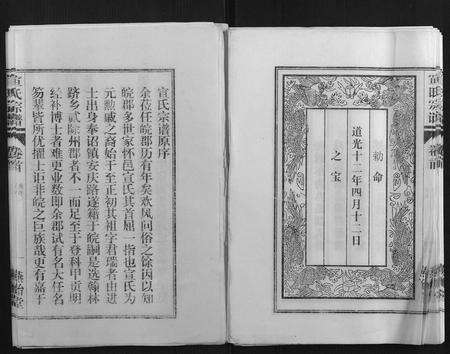 敕命
道光十二年四月十二日
之宝
宣氏宗谱
卷首
宣氏宗谱原序
余莅任皖郡历有年矣欢风问俗之馀因以知
皖郡多世家怀邑宣氏其首屈一指也宣氏为
元勋戚之裔始于至正初其祖字君瑞者由进
士出身奉诏镇安庆路遂籍于皖嗣是选翰林
跻乡贰陟州郡者不一而足至于登科甲贡明
经补博士者难更业数即余郡试有名大任名
笏辈皆所优擢士讵非皖之巨族哉更有嘉于
宣氏宗谱
卷首